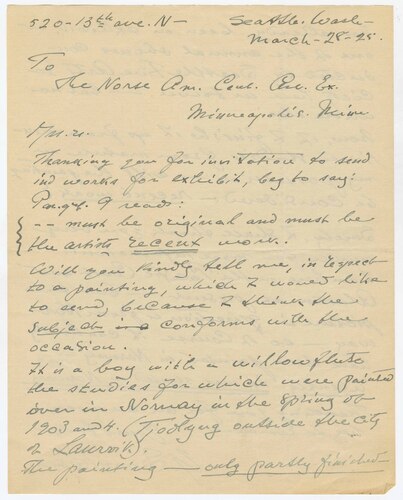 520-13th ave. N- Seattle. Wash-
March-28-25.
To
The Norse Am. Cent. Ex.
Minneapolis. Minn
Thanking you for invitation to send
in works for exhibit, beg to say:
9 reads:
-- must be original and must be
the artists recent work.
Will you kindly tell me, in respect
to a painting, which I would like
to send, because I think the
subject conforms with the
occasion.
It is a boy with a willowflute
the studies for which were painted
over in Norway in the Spring of
1903 and 4. (Tjodlyng outside the City
of
The painting — only partly finished